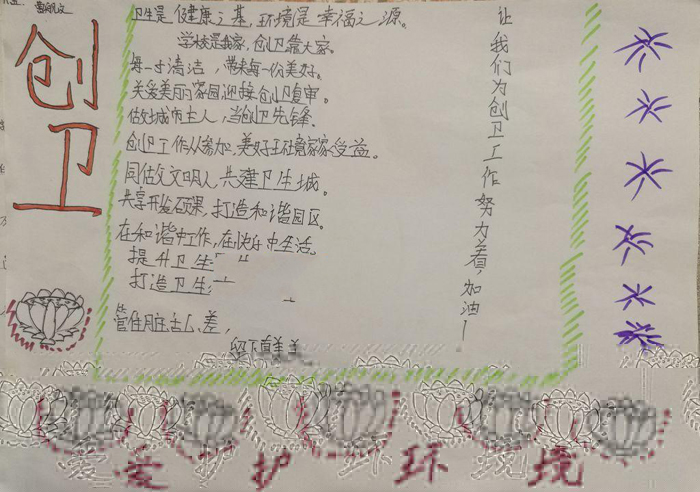 创卫
卫生是健康之基,环境是幸福之源。
学校是我家,创卫靠大家。
每一寸清洁,带来每一份美好。
关爱美丽家园迎接创卫复审。
做城市主人,当创卫先锋。
创卫工作人人参加,美好环境家家受益。
同做文文明人,共建卫生城。
共享开发硕果,打造和谐园区。
在和谐中工作,在快乐中生活。
提升卫生
打造卫生
管住脏乱差,
留下真善美
让我们为创卫工作努力着,加油!
爱护环境